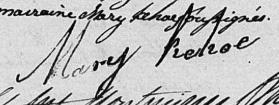 marraine Mary Kehoe soussignés.
Mary Kehoe